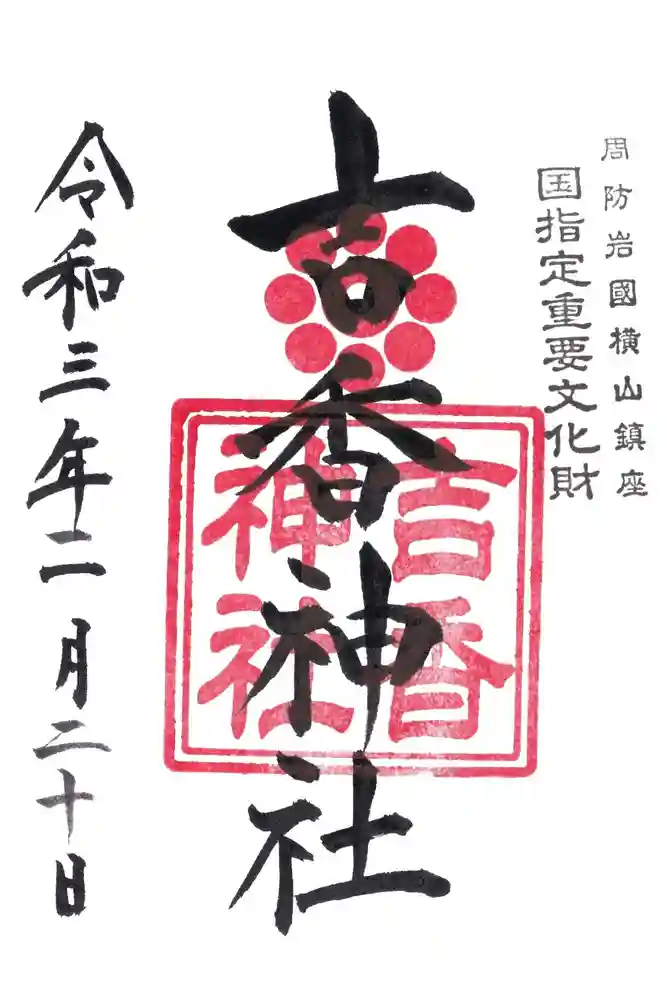 周防岩國横山鎮座
国指定重要文化財
吉香神社
吉香神社
令和三年二月二十日